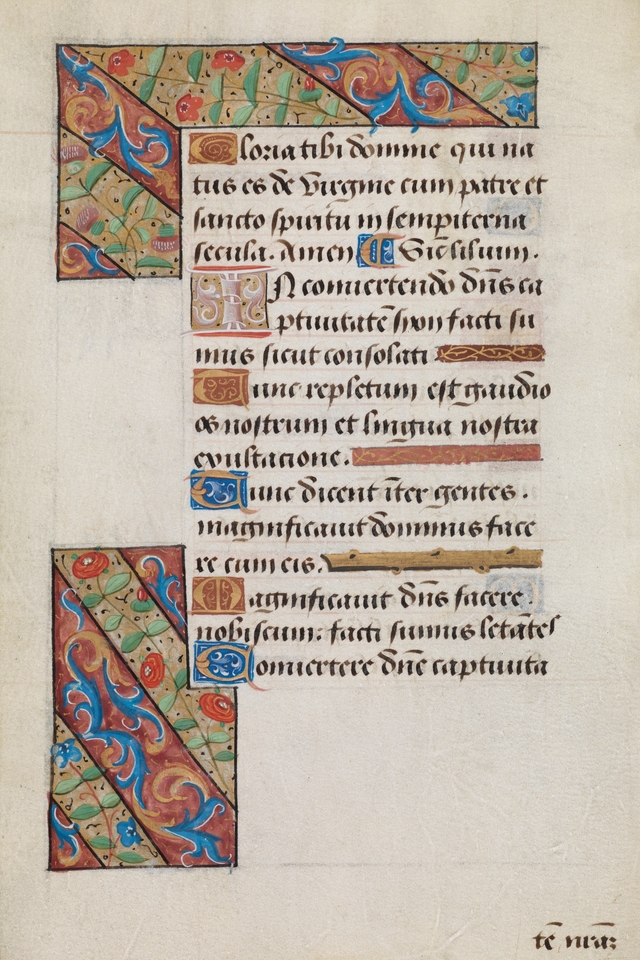 Gloria tibi domine qui na
tus es de virgine cum patre et
sancto spiritu in sempiterna
secula. Amen Sic̄ lilium.
IN convertendo dn̄s ca
ptivitatē syon facti su
mus sicut consolati
Tunc repletum est gaudio
os nostrum et lingua nostra
exultacione.
Tunc dicent īter gentes.
magnificavit dominus face
re cum eis.
Magnificavit dn̄s facere.
nobiscum: facti sumus letātes
Convertere dn̄e captivita
tē nr̄aꝫ